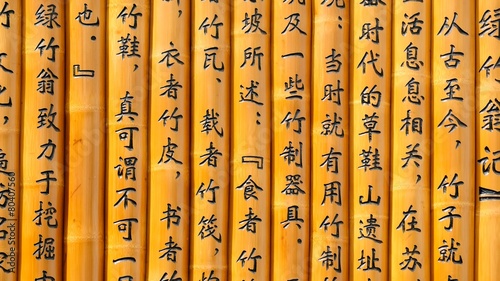 绿竹翁记
从古至今,竹子就
活息息相关,在苏
时代的草鞋山遗址
:当时就有用竹制
及一些竹制器具.
坡所述:『食者竹
竹瓦、载者竹筏、
衣者竹皮,书者
竹鞋,真可谓不可一
也。』
绿竹翁致力于挖掘中
Adobe Stock | #80407560